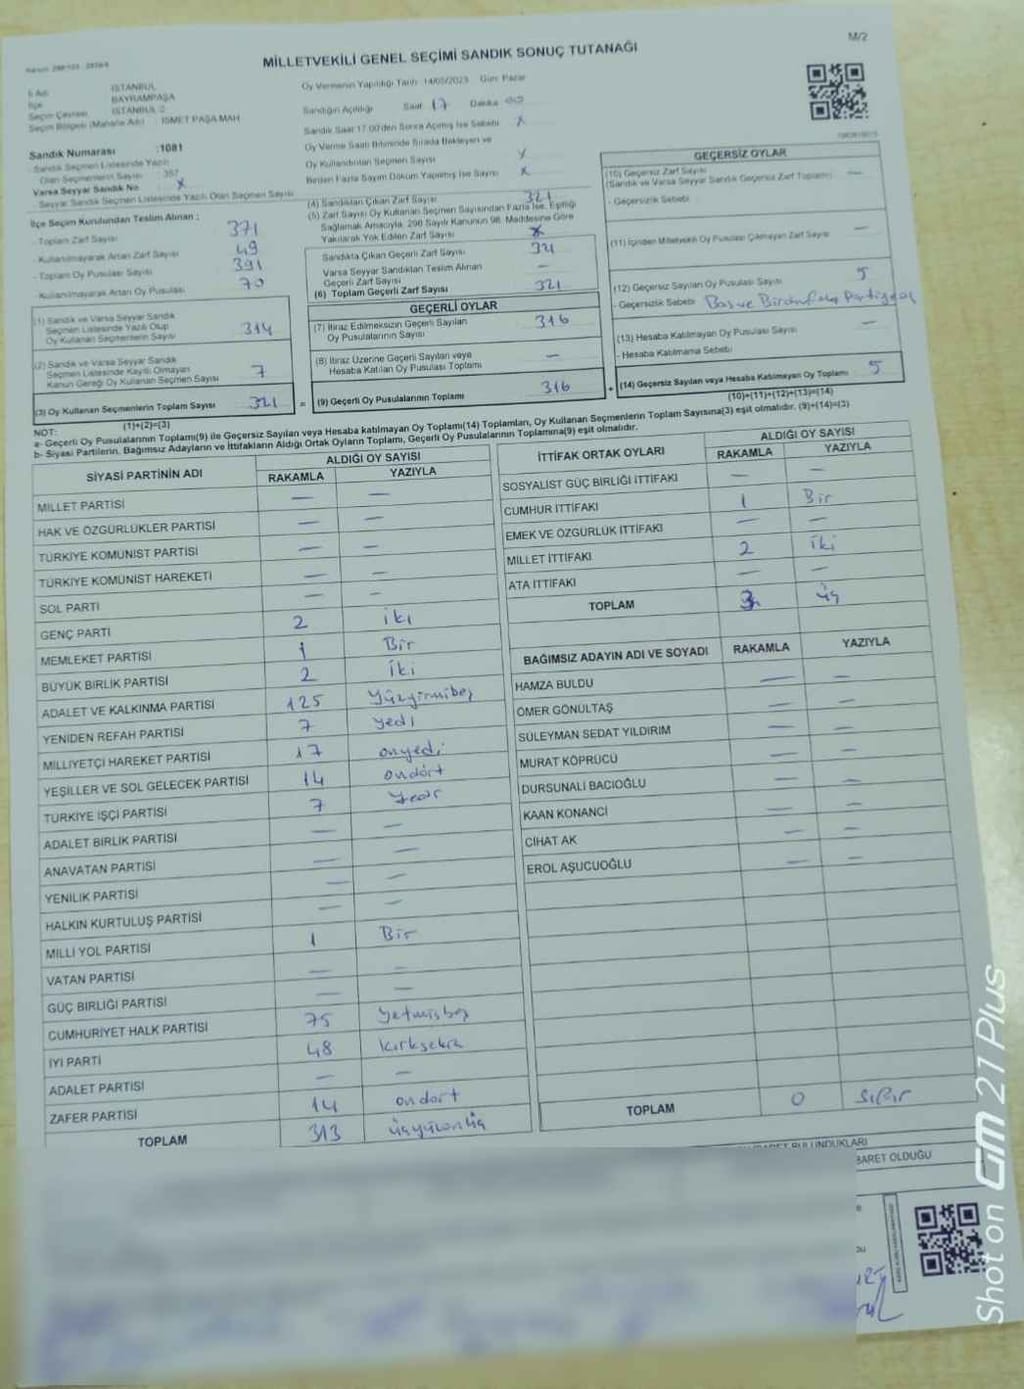 M/2
MİLLETVEKİLİ GENEL SEÇİMİ SANDIK SONUÇ TUTANAĞI
İl Adı İSTANBUL
İlçe BAYRAMPAŞA
Seçim Çevresi İSTANBUL 2
Seçim Bölgesi (Mahalle Adı) : İSMET PAŞA MAH
Sandık Numarası :1081
Sandık Seçmen Listesinde Yazılı
Olan Seçmenlerin Sayısı 357
Varsa Seyyar Sandık No x
- Seyyar Sandık Seçmen Listesinde Yazılı Olan Seçmen Sayısı
İlçe Seçim Kurulundan Teslim Alınan :
- Toplam Zarf Sayısı 371
- Kullanılmayarak Artan Zarf Sayısı 49
- Toplam Oy Pusulası Sayısı 391
- Kullanılmayarak Artan Oy Pusulası 70
(1) Sandık ve Varsa Seyyar Sandık
Seçmen Listesinde Yazılı Olup
Oy Kullanan Seçmenlerin Sayısı 314
(2) Sandık ve Varsa Seyyar Sandık
Seçmen Listesinde Kayıtlı Olmayan
Kanun Gereği Oy Kullanan Seçmen Sayısı 7
(3) Oy Kullanan Seçmenlerin Toplam Sayısı 321
(1)+(2)=(3)
Oy Vermenin Yapıldığı Tarih 14/05/2023 Gün Pazar
Sandığın Açıldığı Saat 17 Dakika
Sandık Saat 17.00'den Sonra Açılmış İse Sebebi x
Oy Verme Saati Bitiminde Sırada Bekleyen ve
Oy Kullandırılan Seçmen Sayısı x
Birden Fazla Sayım Döküm Yapılmış İse Sayısı x
(4) Sandıktan Çıkan Zarf Sayısı 321
(5) Zarf Sayısı Oy Kullanan Seçmen Sayısından Fazla İse, Eşitliği
Sağlamak Amacıyla, 298 Sayılı Kanunun 98. Maddesine Göre
Yakılarak Yok Edilen Zarf Sayısı x
Sandıkta Çıkan Geçerli Zarf Sayısı 321
Varsa Seyyar Sandıktan Teslim Alınan
Geçerli Zarf Sayısı —
(6) Toplam Geçerli Zarf Sayısı 321
GEÇERLİ OYLAR
(7) İtiraz Edilmeksizin Geçerli Sayılan
Oy Pusulalarının Sayısı 316
(8) İtiraz Üzerine Geçerli Sayılan veya
Hesaba Katılan Oy Pusulası Toplamı —
= (9) Geçerli Oy Pusulalarının Toplamı 316
GEÇERSİZ OYLAR
(10) Geçersiz Zarf Sayısı
(Sandık ve Varsa Seyyar Sandık Geçersiz Zarf Toplamı) —
- Geçersizlik Sebebi
(11) İçinden Milletvekili Oy Pusulası Çıkmayan Zarf Sayısı —
(12) Geçersiz Sayılan Oy Pusulası Sayısı 5
- Geçersizlik Sebebi
(13) Hesaba Katılmayan Oy Pusulası Sayısı —
- Hesaba Katılmama Sebebi
+ (14) Geçersiz Sayılan veya Hesaba Katılmayan Oy Toplamı 5
(10)+(11)+(12)+(13)=(14)
NOT:
a- Geçerli Oy Pusulalarının Toplamı(9) ile Geçersiz Sayılan veya Hesaba katılmayan Oy Toplamı(14) Toplamları, Oy Kullanan Seçmenlerin Toplam Sayısına(3) eşit olmalıdır. (9)+(14)=(3)
b- Siyasi Partilerin, Bağımsız Adayların ve İttifakların Aldığı Ortak Oyların Toplamı, Geçerli Oy Pusulalarının Toplamına(9) eşit olmalıdır.
SİYASİ PARTİNİN ADI ALDIĞI OY SAYISI
RAKAMLA YAZIYLA
MİLLET PARTİSİ — —
HAK VE ÖZGÜRLÜKLER PARTİSİ — —
TÜRKİYE KOMÜNİST PARTİSİ — —
TÜRKİYE KOMÜNİST HAREKETİ — —
SOL PARTİ — —
GENÇ PARTİ 2 iki
MEMLEKET PARTİSİ 1 Bir
BÜYÜK BİRLİK PARTİSİ 2 İki
ADALET VE KALKINMA PARTİSİ 125 Yüzyirmibeş
YENİDEN REFAH PARTİSİ 7 yedi
MİLLİYETÇİ HAREKET PARTİSİ 17 onyedi
YEŞİLLER VE SOL GELECEK PARTİSİ 14 ondört
TÜRKİYE İŞÇİ PARTİSİ 7 Yedi
ADALET BİRLİK PARTİSİ — —
ANAVATAN PARTİSİ — —
YENİLİK PARTİSİ — —
HALKIN KURTULUŞ PARTİSİ — —
MİLLİ YOL PARTİSİ 1 Bir
VATAN PARTİSİ — —
GÜÇ BİRLİĞİ PARTİSİ — —
CUMHURİYET HALK PARTİSİ 75 Yetmişbeş
İYİ PARTİ 48 kırksekiz
ADALET PARTİSİ — —
ZAFER PARTİSİ 14 ondört
TOPLAM 313 üçyüzonüç
İTTİFAK ORTAK OYLARI ALDIĞI OY SAYISI
RAKAMLA YAZIYLA
SOSYALİST GÜÇ BİRLİĞİ İTTİFAKI — —
CUMHUR İTTİFAKI 1 Bir
EMEK VE ÖZGÜRLÜK İTTİFAKI — —
MİLLET İTTİFAKI 2 İki
ATA İTTİFAKI — —
TOPLAM 3 üç
BAĞIMSIZ ADAYIN ADI VE SOYADI RAKAMLA YAZIYLA
HAMZA BULDU — —
ÖMER GÖNÜLTAŞ — —
SÜLEYMAN SEDAT YILDIRIM — —
MURAT KÖPRÜCÜ — —
DURSUNALİ BACIOĞLU — —
KAAN KONANCI — —
CİHAT AK — —
EROL AŞUCUOĞLU — —
TOPLAM 0 Sıfır
BULUNDUKLARI
BARET OLDUĞU
Shot on Gm 21 Plus